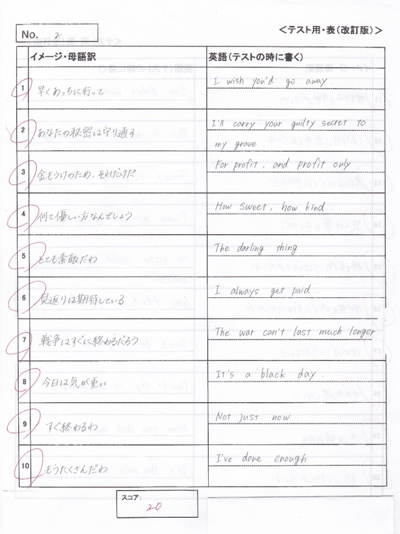 No. 2
＜テスト用・表(改訂版)＞
イメージ・母語訳 英語(テストの時に書く)
1 早くあっちに行って I wish you'd go away
2 あなたの秘密は守り通す I'll carry your guilty secret to
my grave
3 金もうけのため、それだけだ For profit, and profit only
4 何て優しい方なんでしょう How sweet, how kind
5 とても素敵だわ The darling thing
6 見返りは期待している I always get paid
7 戦争はすぐに終わるだろう The war can't last much longer
8 今日は気が重い It's a black day.
9 すぐ終わるわ Not just now
10 もうたくさんだわ I've done enough.
スコア:
20